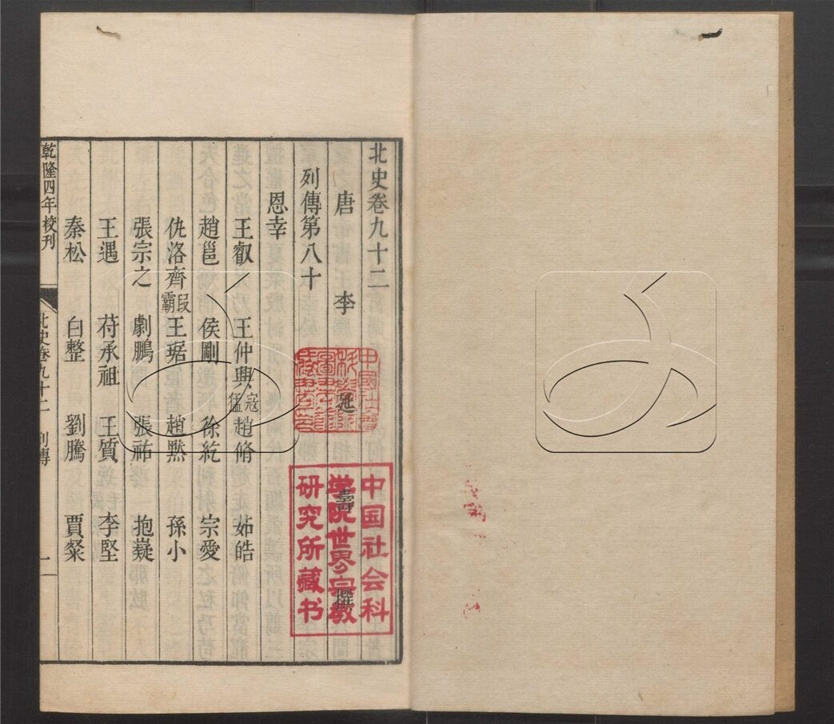 北史卷九十二
唐 李 延 壽 撰
列傳第八十
恩幸
王叡 王仲興 寇猛 趙脩 茹皓
趙邕 侯剛 徐紇 宗愛
仇洛齊 段霸 王琚 趙黙 孫小
張宗之 劇鵬 張祐 抱嶷
王遇 苻承祖 王質 李堅
秦松 白整 劉騰 賈粲
乾隆四年校刊 北史卷九十二 列傳 一
中国社会科
学院世界宗教
研究所藏书